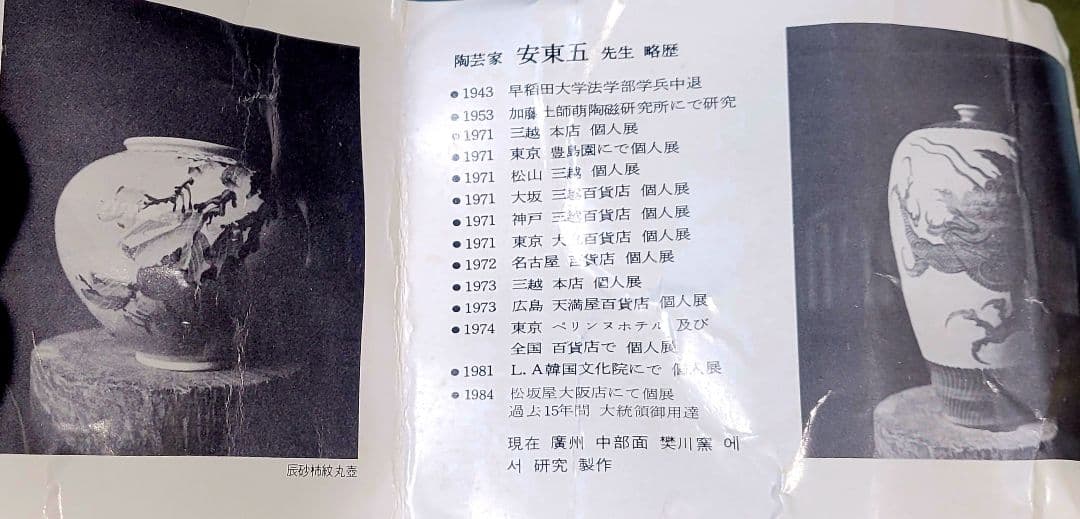 陶芸家 安東五 先生 略歴
● 1943 早稲田大学法学部学兵中退
● 1953 加藤土師萌陶磁研究所にて研究
● 1971 三越 本店 個人展
● 1971 東京 豊島園にて個人展
● 1971 松山 三越 個人展
● 1971 大坂 三越百貨店 個人展
● 1971 神戸 三越百貨店 個人展
● 1971 東京 百貨店 個人展
● 1972 名古屋 百貨店 個人展
● 1973 三越 本店 個人展
● 1973 広島 天満屋百貨店 個人展
● 1974 東京 ペリンヌホテル 及び
全国 百貨店で 個人展
● 1981 L.A韓国文化院にで 個人展
● 1984 松坂屋大阪店にて個展
過去15年間 大統領御用達
現在 廣州 中部面 樊川窯 에
서 研究 製作
辰砂柿紋丸壺